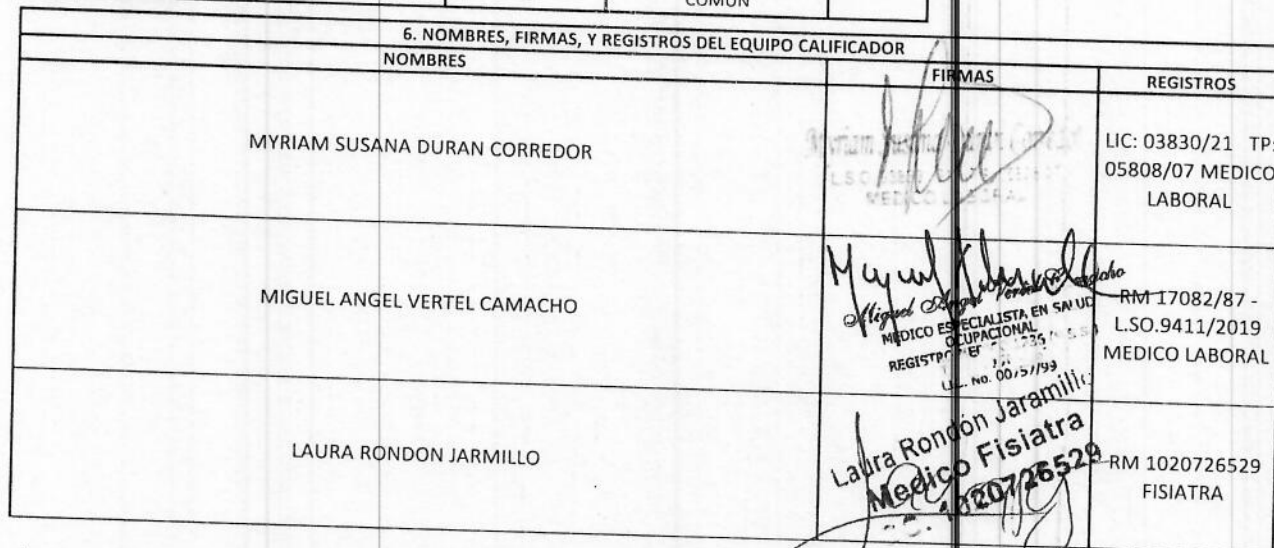 COMUN
6. NOMBRES, FIRMAS, Y REGISTROS DEL EQUIPO CALIFICADOR
NOMBRES
FIRMAS
REGISTROS
MYRIAM SUSANA DURAN CORREDOR
MEDICO
LIC: 03830/21 TP:
05808/07 MEDICO
LABORAL
MIGUEL ANGEL VERTEL CAMACHO
Miguel Angel
MEDICO ESPECIALISTA EN SALUD
OCUPACIONAL
No. 00757/99
RM 17082/87 -
L.SO.9411/2019
MEDICO LABORAL
LAURA RONDON JARMILLO
Laura Rondón Jaramillo
Medico Fisiatra
1020726529
RM 1020726529
FISIATRA